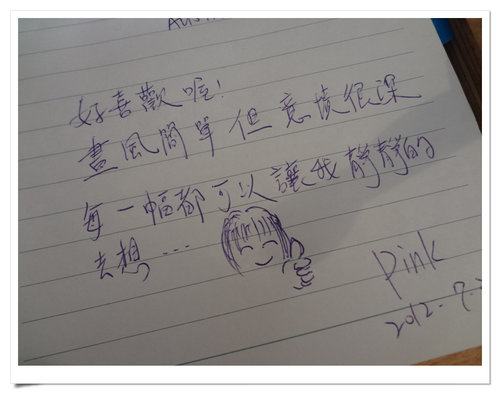 好喜歡喔!
畫風簡單但意境很深
每一幅都可以讓我靜靜的
去想...
Pink
2012.7.